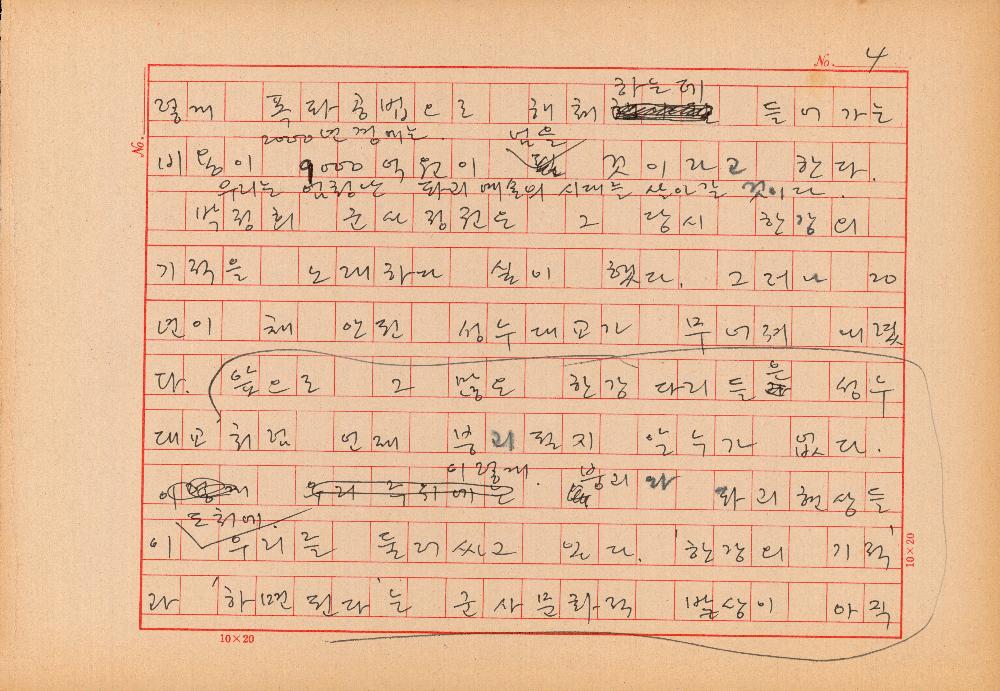 No. 4
하는데
렇게 폭파공법으로 해체 들어가는
2000년경에는 넘을
비용이 9000억원이 것이라고 한다.
우리는 엄청난 파괴 예술의 시대를 살아갈 것이다.
박정희 군사정권은 그 당시 한강의
기적을 노래하다 싶이 했다. 그러나 20
년이 채 안된 성수대교가 무너져 내렸
다. 앞으로 그 많은 한강 다리들은 성수
대교처럼 언제 붕괴될지 알 수가 없다.
이렇게. 붕괴와 파괴현상들
도처에.
이 우리를 둘러싸고 있다. '한강의 기적'
과 '하면 된다'는 군사문화적 발상이 아직
No.
10×20
10×20